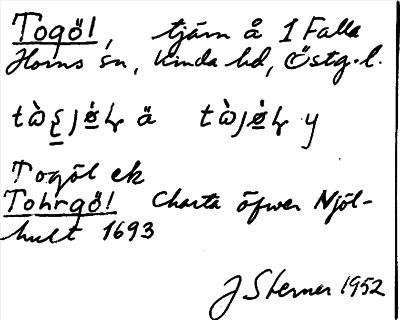 Togöl, tjärn å 1 Falla
Horns sn, Kinda hd, Östg.l.
ä y
Togöl ek
Tohrgöl Charta öfwer Njöl-
hult 1693
J Sterner 1952